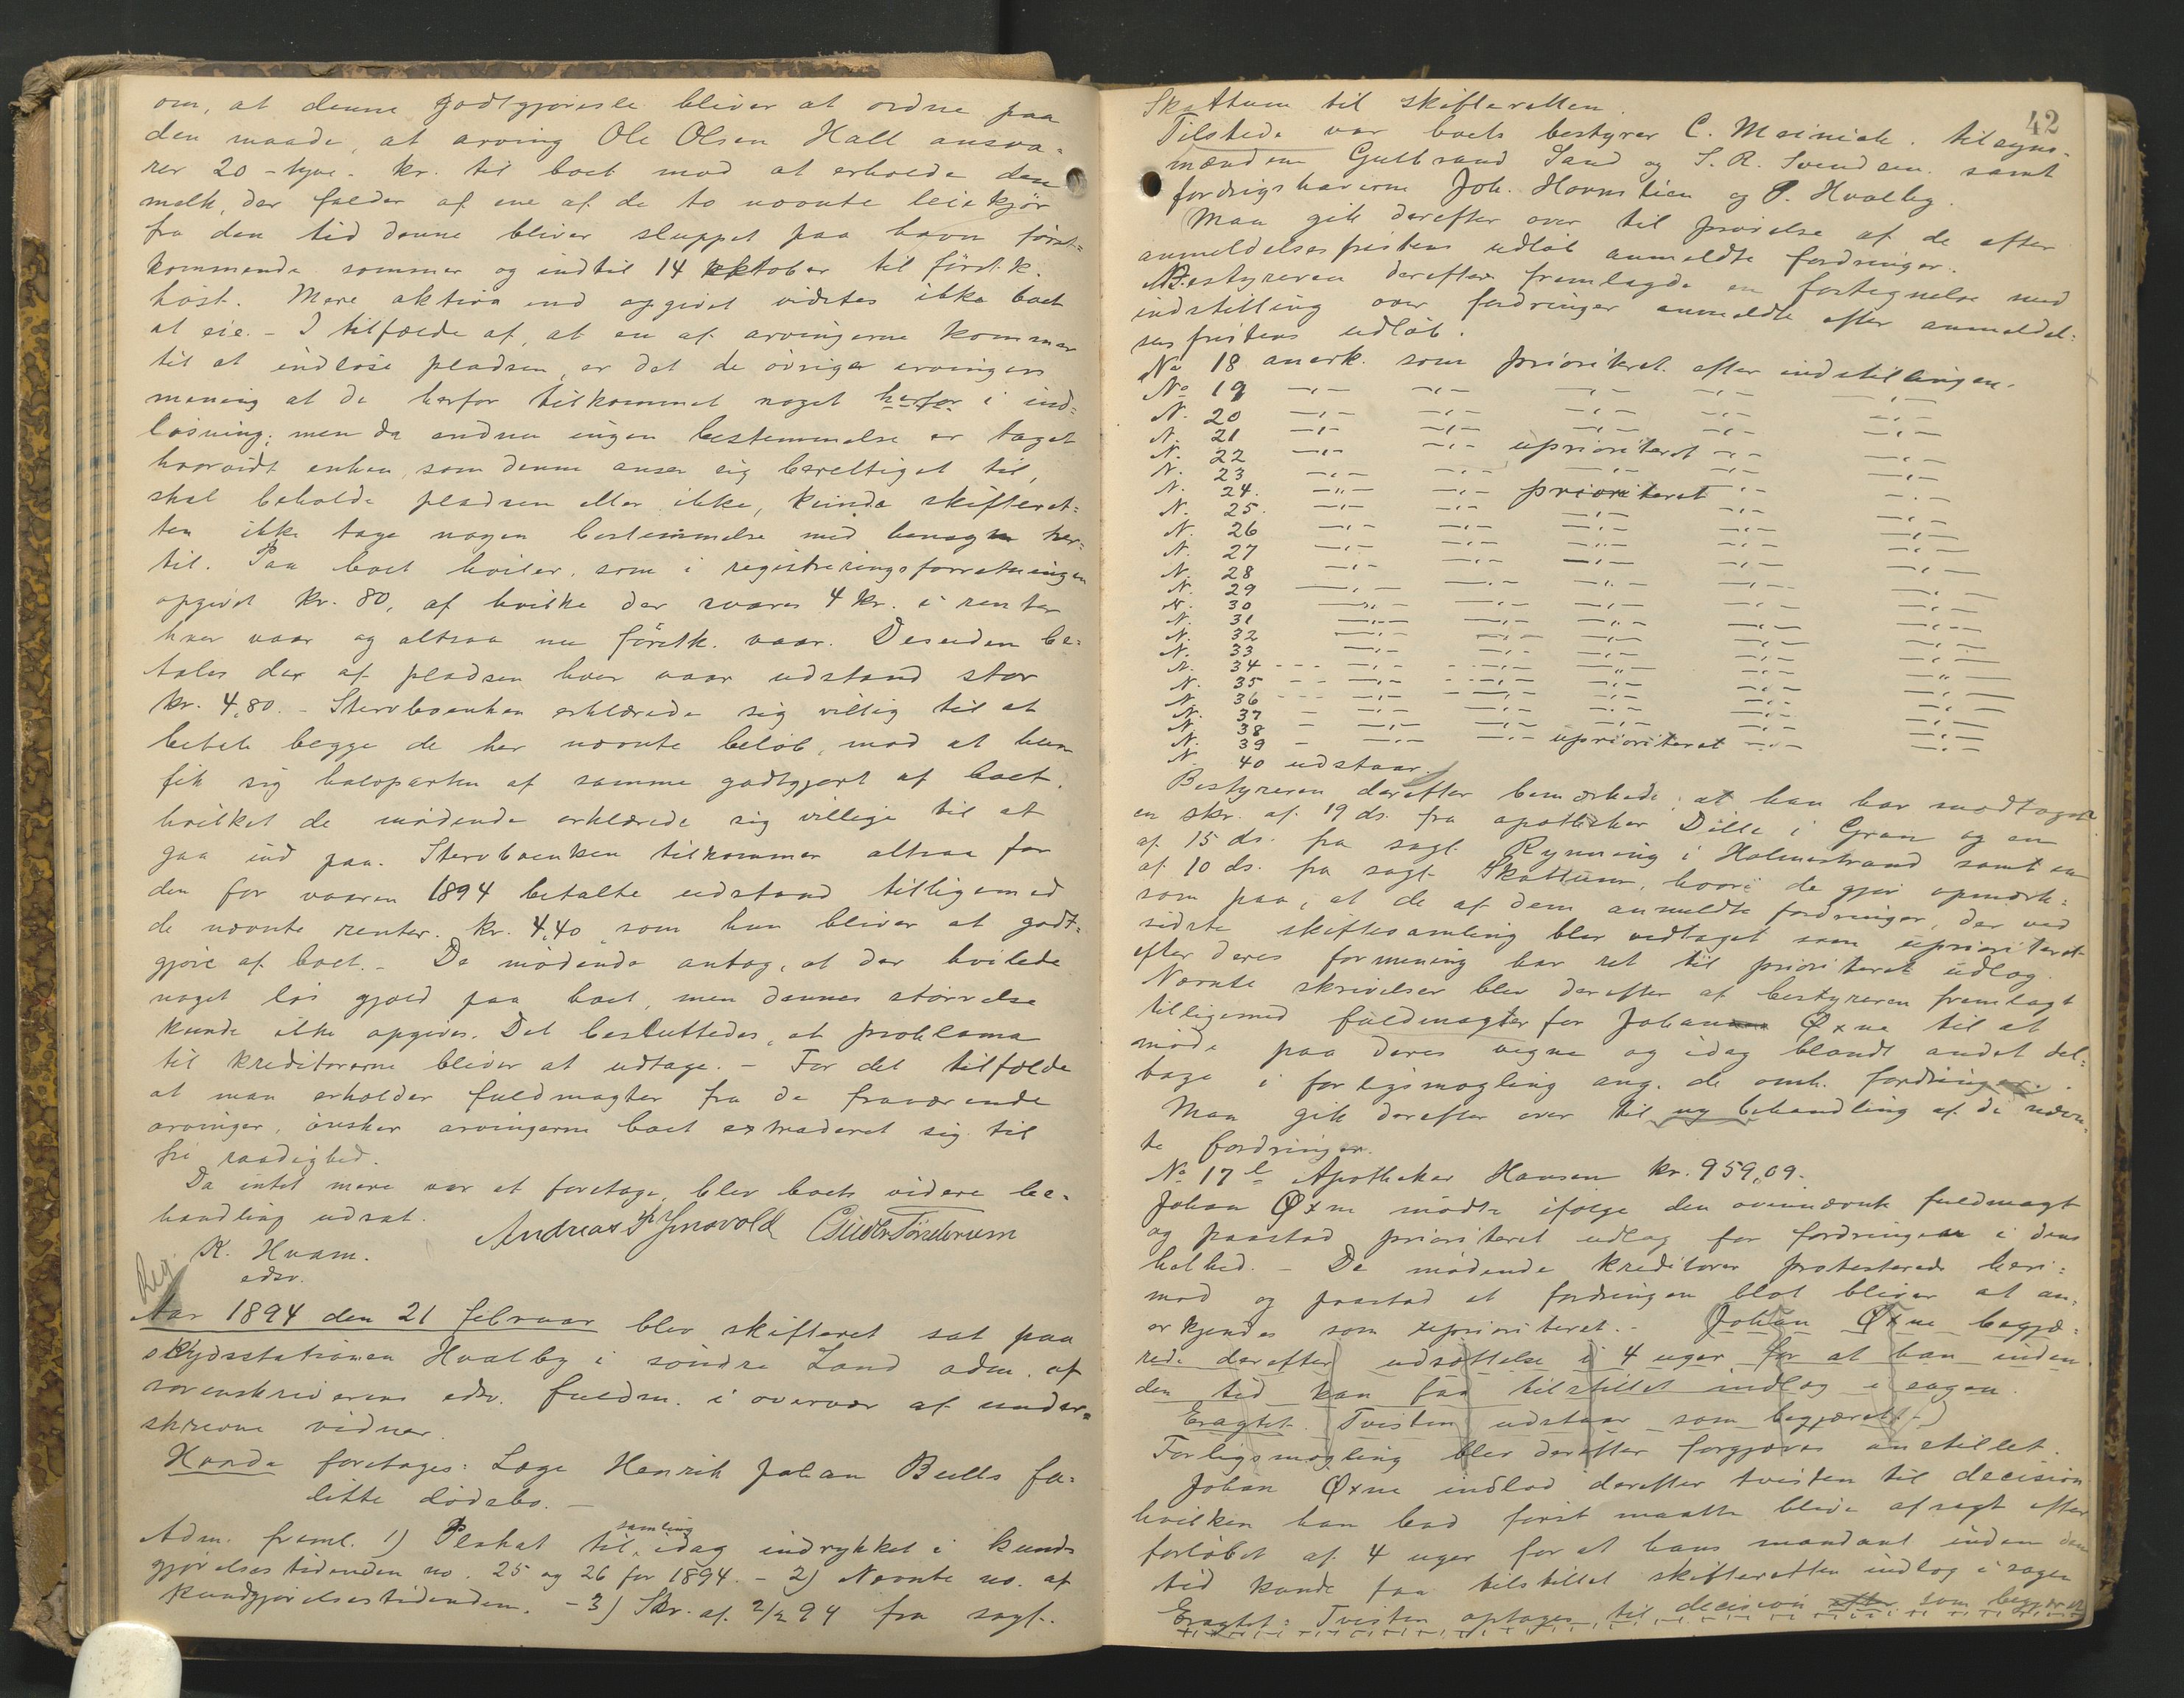 om, at denne godtgjørelse bliver at ordne paa
den maade, at arving Ole Olsen Hall ansva=
rer 20 - tyve - kr. til boet mod at erholde den
melk, der falder af ene af de to nævnte leiekjør
fra den tid denne bliver sluppet paa havn først=
kommende sommer og indtil 14 oktober til førstk.
høst. Mere aktiva end opgivet vidstes ikke boet
at eie. - I tilfælde af, at en af arvingerne kommer
til at indløse pladsen, er det de øvrige arvingers
mening at de herfor tilkommet noget herfor i ind=
løsning; men da endnu ingen bestemmelse er taget
hvorvidt enken, som denne anser sig berettiget til,
skal beholde pladsen eller ikke, kunde skifteret=
ten ikke tage nogen bestemmelse med hensyn her=
til. Paa boet hviler, som i registreringsforretningen
opgivet kr. 80, af hvilke der svares 4 kr. i renter
hver vaar og altsaa nu førstk. vaar. Desuden be=
tales der af pladsen hver vaar udstand stor
kr. 4,80. - Stervboenken erklærede sig villig til at
betale begge de her nævnte beløb, mod at hun
fik sig halvparten af samme godtgjort af boet,
hvilket de mødende erklærede sig villige til at
gaa ind paa. Stervboenken tilkommer altsaa for
den for vaaren 1894 betalte udstand tilligemed
de nævnte renter. kr. 4,40 som hun bliver at godt=
gjøre af boet. - De mødende antog, at der hvilede
noget løs gjæld paa boet, men dennes størrelse
kunde ikke opgives. Det besluttedes, at proklama
til kreditorerne bliver at udtage. - For det tilfælde
at man erholder fuldmagter fra de fraværende
arvinger, ønsker arvingerne boet extraderet sig til
fri raadighed.
Da intet mere var at foretage, blev boets videre be=
handling udsat.
Andreas Smevold
K. Hvam.
edsv.
Reg.
Aar 1894 den 21 februar blev skifteret sat paa
skydsstationen Hvalby i søndre Land adm. af
sorenskriverens edsv. fuldm. i overvær af under=
skrevne vidner.
Hvorda foretages: Læge Henrik Johan Bulls fa=
litte dødsbo. -
Adm. freml. 1) Plakat til samling idag indrykket i kund=
gjørelsestidenden no. 25 og 26 for 1894. - 2) Nævnte no. af
kundgjørelsestidenden. - 3) Skr. af 2/2 94 fra sagf.
42
Skattum til skifteretten.
Tilstede var boets bestyrer C. Meinich. tilsyns-
mændene Gulbrand Sand og S. R. Svendsen. samt
fordrigshaverne Joh. Hovnstien og P. Hvalby.
Man gik derefter over til prøvelse af de efter
anmeldelsesfristens udløb anmeldte fordringer.
Bestyreren derefter fremlagde en fortegnelse med
indstilling over fordringer anmeldte efter anmeldel=
sesfristens udløb.
No 18 anerk. som prioriteret efter indstillingen.
No 19 -"- -"- -"- -"- -"-
N. 20 -"- -"- -"- -"- -"-
N. 21 -"- -"- -"- -"- -"-
N. 22 -"- -"- uprioriteret -"- -"-
N. 23 -"- -"- -"- -"- -"-
N. 24. -"- -"- prioriteret -"- -"-
N. 25. -"- -"- -"- -"- -"-
N. 26 -"- -"- -"- -"- -"-
N. 27 -"- -"- -"- -"- -"-
N. 28 -"- -"- -"- -"- -"-
N. 29 -"- -"- -"- -"- -"-
N. 30 -"- -"- -"- -"- -"-
N. 31 -"- -"- -"- -"- -"-
N. 32 -"- -"- -"- -"- -"-
N. 33 -"- -"- -"- -"- -"-
N. 34 -"- -"- -"- -"- -"-
N. 35 -"- -"- -"- -"- -"-
N. 36 -"- -"- -"- -"- -"-
N. 37 -"- -"- -"- -"- -"-
N. 38 -"- -"- -"- -"- -"-
N. 39 -"- -"- uprioriteret -"- -"-
N. 40 udstaar.
Bestyreren derefter bemærkede, at han har modtaget
en skr. af 19 ds. fra apotheker Dille i Gran og en
af 15 ds. fra sagf. Rynning i Holmestrand samt en
af 10 ds. fra sagf. Skattum, hvori de gjør opmærk=
som paa, at de af dem anmeldte fordringer, der ved
sidste skiftesamling blev vedtaget som uprioriteret
efter deres formening har ret til prioriteret udlæg.
Nævnte skrivelser blev derefter af bestyreren fremlagt
tilligemed fuldmagter for Johan Øxne til at
møde paa deres vegne og idag blandt andet del=
tage i forligsmægling ang. de omh. fordringer.
Man gik derefter over til ny behandling af de nævn=
te fordringer.
No 17 l Apotheker Hansen kr. 959,09.
Johan Øxne mødte ifølge den ovennævnte fuldmagt
og paastod prioriteret udlæg for fordringen i dens
helhed. - De mødende kreditorer protesterede heri=
mod og paastod at fordringen blot bliver at an=
erkjendes som uprioriteret. - Johan Øxne begjæ=
rede derefter udsættelse i 4 uger for at han inden
den tid kan faa tilstillet indlæg i sagen.
Eragtet. Tvisten udstaar som begjæret. -)
Forligsmægling blev derefter forgjæves anstillet.
Johan Øxne indlod derefter tvisten til decision
hvilken han bad først maatte blive afsagt efter
forløbet af 4 uger for at hans mandant inden den
tid kunde faa tilstillet skifteretten indlæg i sagen
Eragtet: Tvisten optages til decision efter som begjæret